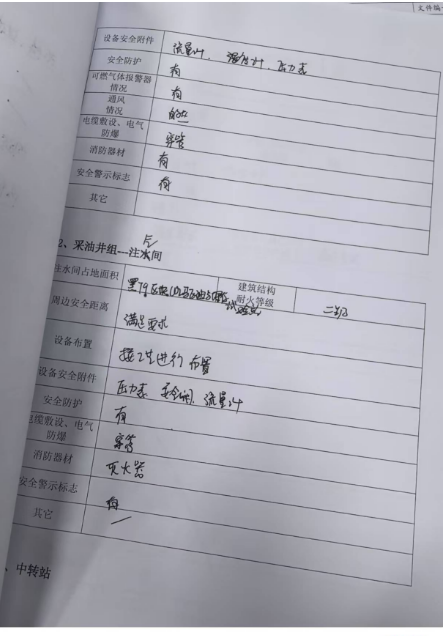 文件编
设备安全附件 流量计、温度计、压力表
安全防护 有
可燃气体报警器
情况 有
通风
情况 自然
电缆敷设、电气
防爆 穿管
消防器材 有
安全警示标志 有
其它
2、采油井组—注水间
气
注水间占地面积 黑79区块 建筑结构
耐火等级 二级
周边安全距离 满足要求
设备布置 按工艺进行布置
设备安全附件 压力表 安全阀、流量计
安全防护 有
电缆敷设、电气
防爆 穿管
消防器材 灭火器
安全警示标志 有
其它 /
、中转站